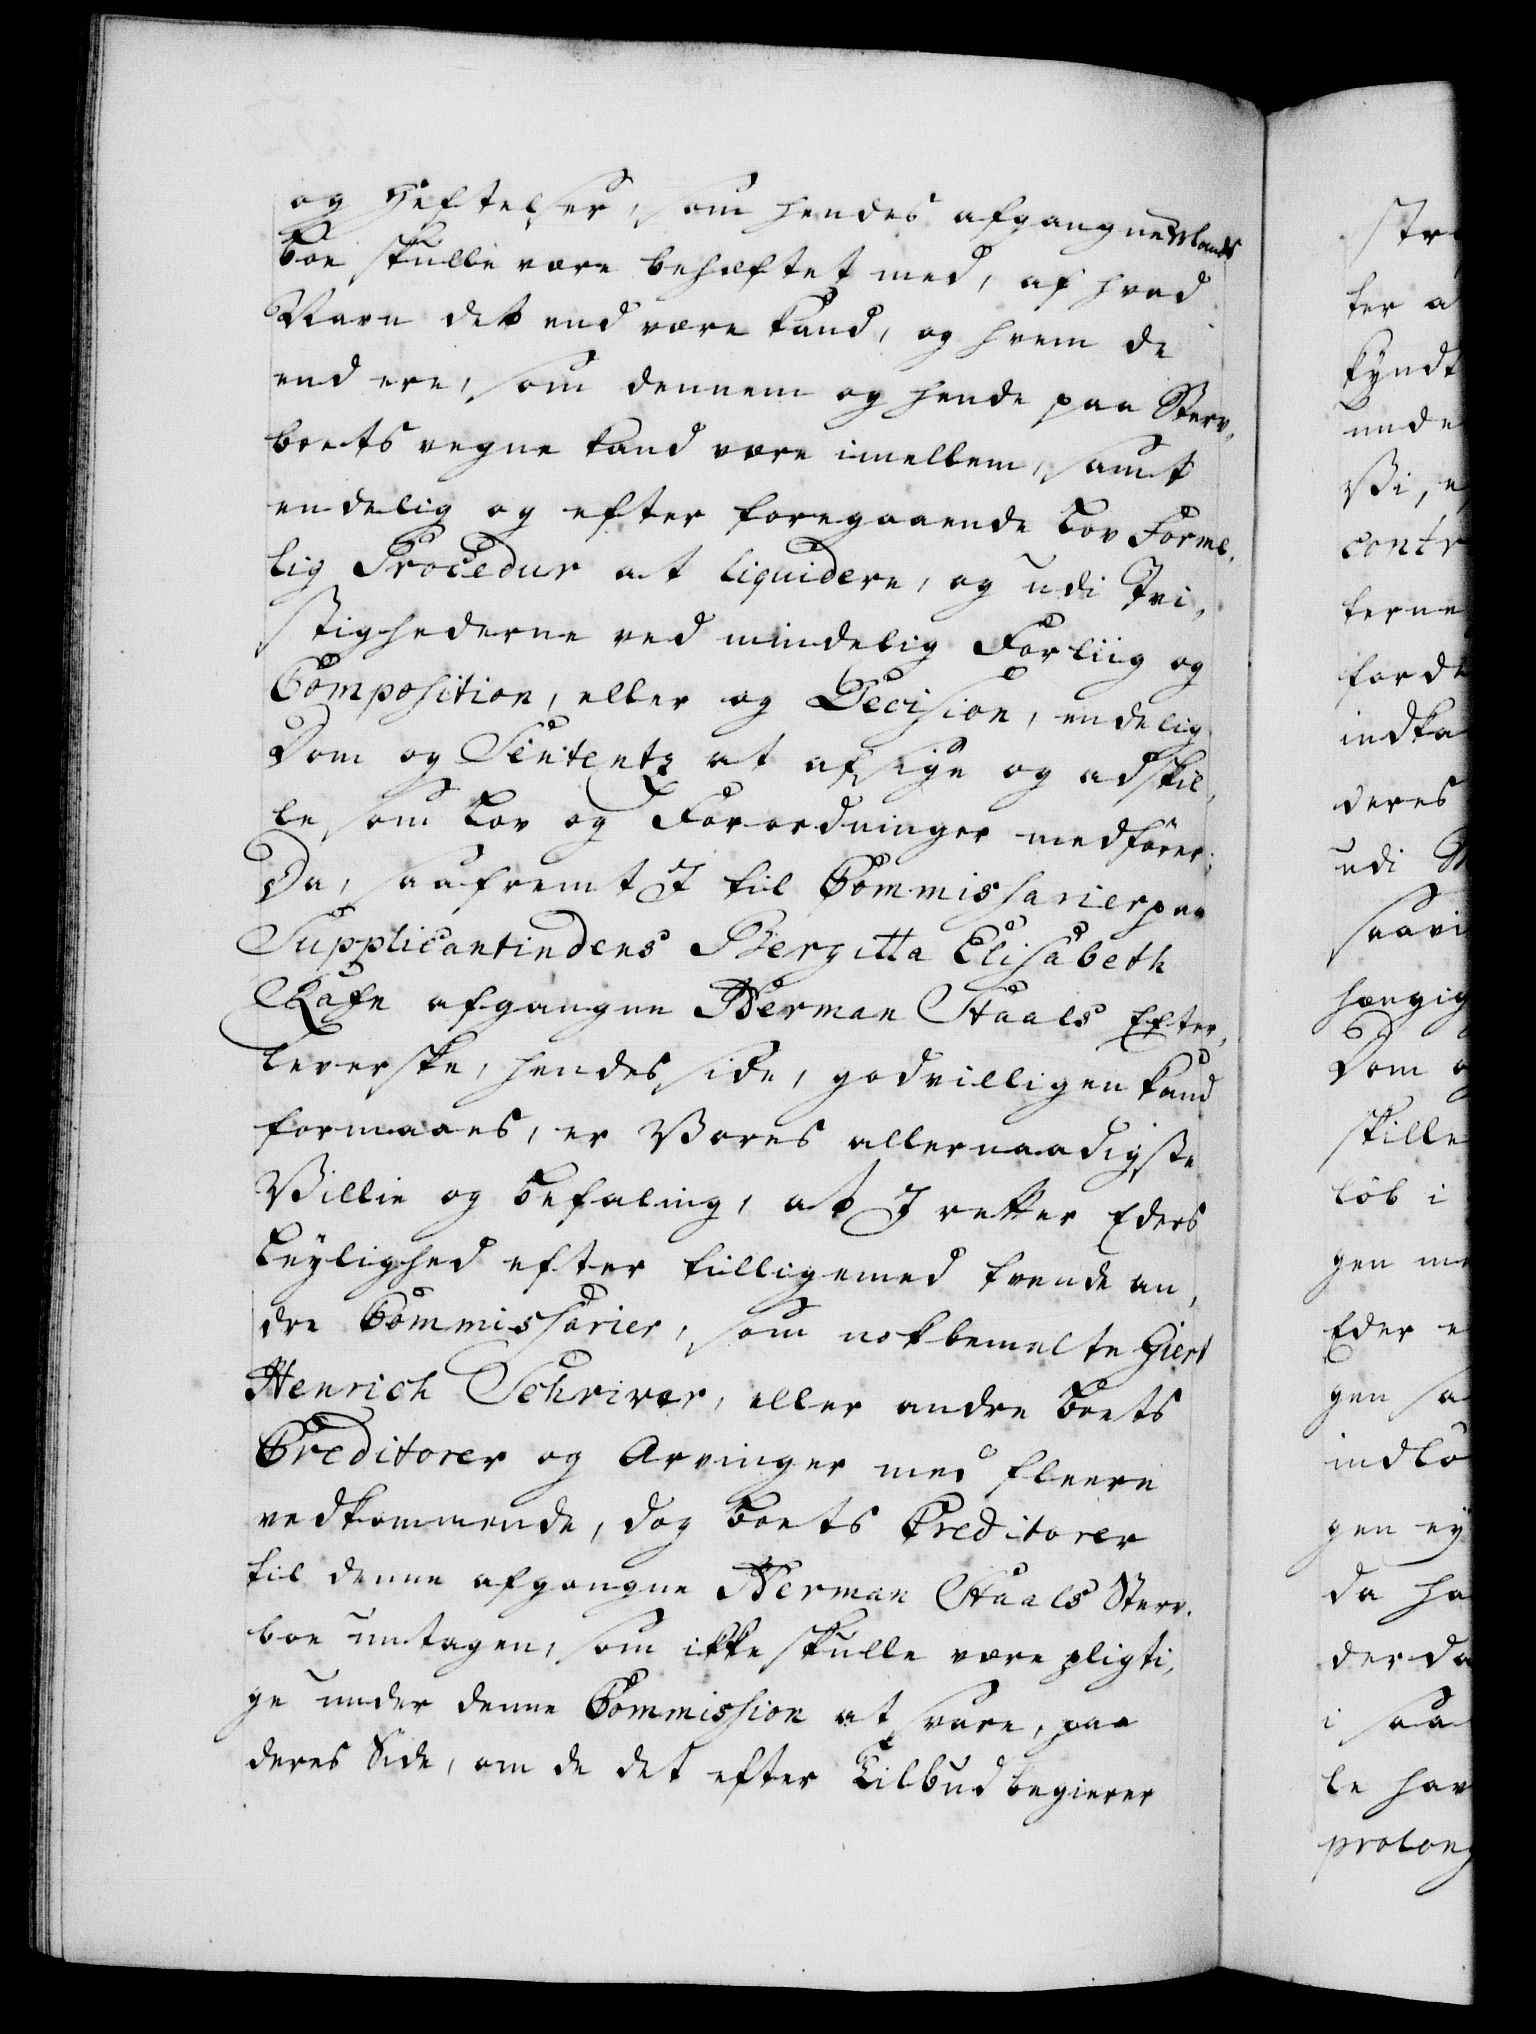 og Heftelser, som hendes afgangne Mands
Boe skulle være behæftet med, af hvad
Navn det end være kand, og hvem de
end ere, som dennem og hende paa Sterv-
boets vegne kand være imellem, samt
endelig og efter foregaaende Lov Forme-
lig Procedur at liquidere, og udi Tvi-
stighederne ved mindelig Forliig og
Composition, eller og Decision, endelig
Dom og Sententz at afsige og adskil-
le som Lov og Forordninger medfører;
Da, saafremt I til Commissarier paa
Supplicantindens Bergitta Elisabeth
Rafn afgangne Herman Staals Efter-
leverske, hendes side, godvilligen kand
formaaes, er Vores allernaadigste
Villie og Befaling, at I retter Eders
Leylighed efter tilligemed tvende an-
dre Commissarier, som nokbemelte Giert
Henrich Schriver, eller andre Boets
Creditorer og Arvinger med fleere
vedkommende, dog Boets Creditorer
til denne afgangne Herman Staals Sterv-
boe untagen, som ikke skulle være pligti-
ge under denne Commission at svare, paa
deres Side, om de det efter Tilbud begierer
ter a
kyndt
unde
Vi, e
contr
terne
fordt
indka
deres
udi
saavi
hængig
Dom o
skille
løb i
gen me
Eder e
gen sa
indlø
gen ey
da ha
der da
i saa
le hav
prolong